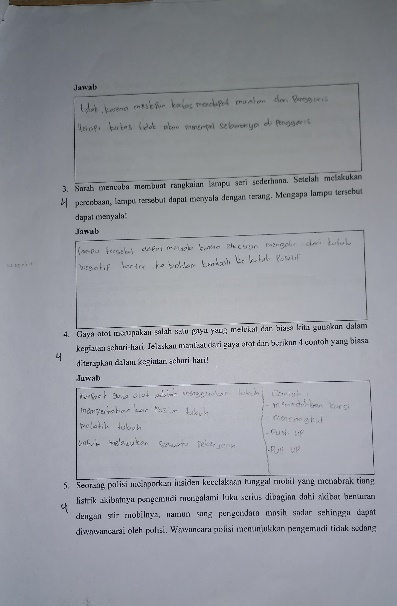 Jawab
tidak, karena meskipun kertas mendapat muatan dari Penggaris
tetapi kertas tidak akan menempel selamanya di Penggaris
3. Sarah mencoba membuat rangkaian lampu seri sederhana. Setelah melakukan
4 percobaan, lampu tersebut dapat menyala dengan terang. Mengapa lampu tersebut
dapat menyala!
Jawab
lampu tersebut dapat menyala karena elektron mengalir dari kutub
negatif baterai ke kutub Positif
4. Gaya otot merupakan salah satu gaya yang melekat dan biasa kita gunakan dalam
4 kegiatan sehari-hari. Jelaskan manfaat dari gaya otot dan berikan 4 contoh yang biasa
diterapkan dalam kegiatan sehari-hari!
Jawab
gaya otot menggerakkan tubuh
tubuh
melatih tubuh
untuk melakukan sesuatu Pekerjaan
- memindahkan kursi
- Push UP
- Pull UP
5. Seorang polisi melaporkan insiden kecelakaan tunggal mobil yang menabrak tiang
4 listrik akibatnya pengemudi mengalami luka serius dibagian dahi akibat benturan
dengan stir mobilnya, namun sang pengendara masih sadar sehingga dapat
diwawancarai oleh polisi. Wawancara polisi menunjukkan pengemudi tidak sedang